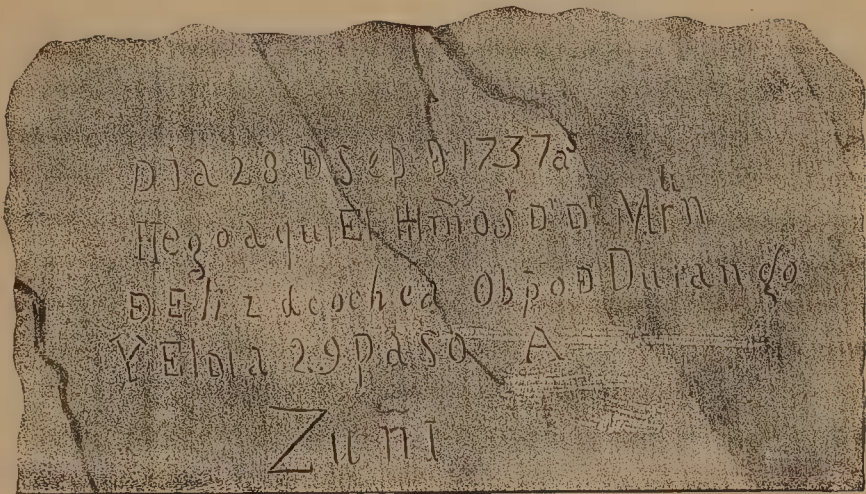 Dia 28 Ð Sep Ð 1737 aˢ
llego aqui El Illmo Sʳ Dʳ Dⁿ Mrᵗⁱn
Ð Elizacochea Obpo Ð Durango
Y El Dia 29 paso A
Zuñi